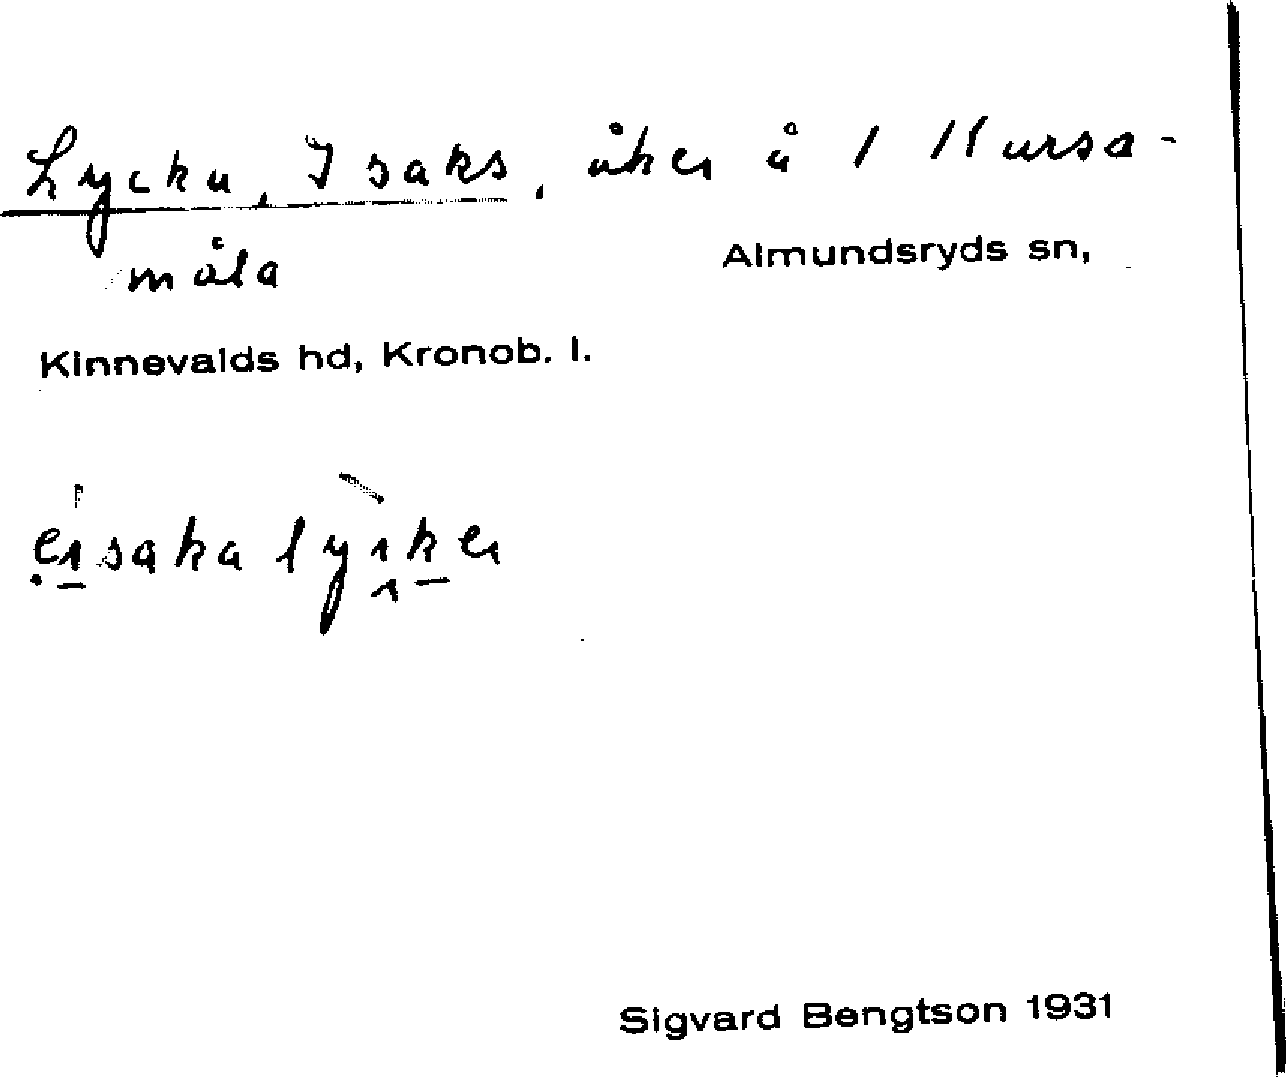 Lycka, Isaks, åker å 1 Kursa-
måla
Almundsryds sn,
Kinnevalds hd, Kronob. l.
Sigvard Bengtson 1931